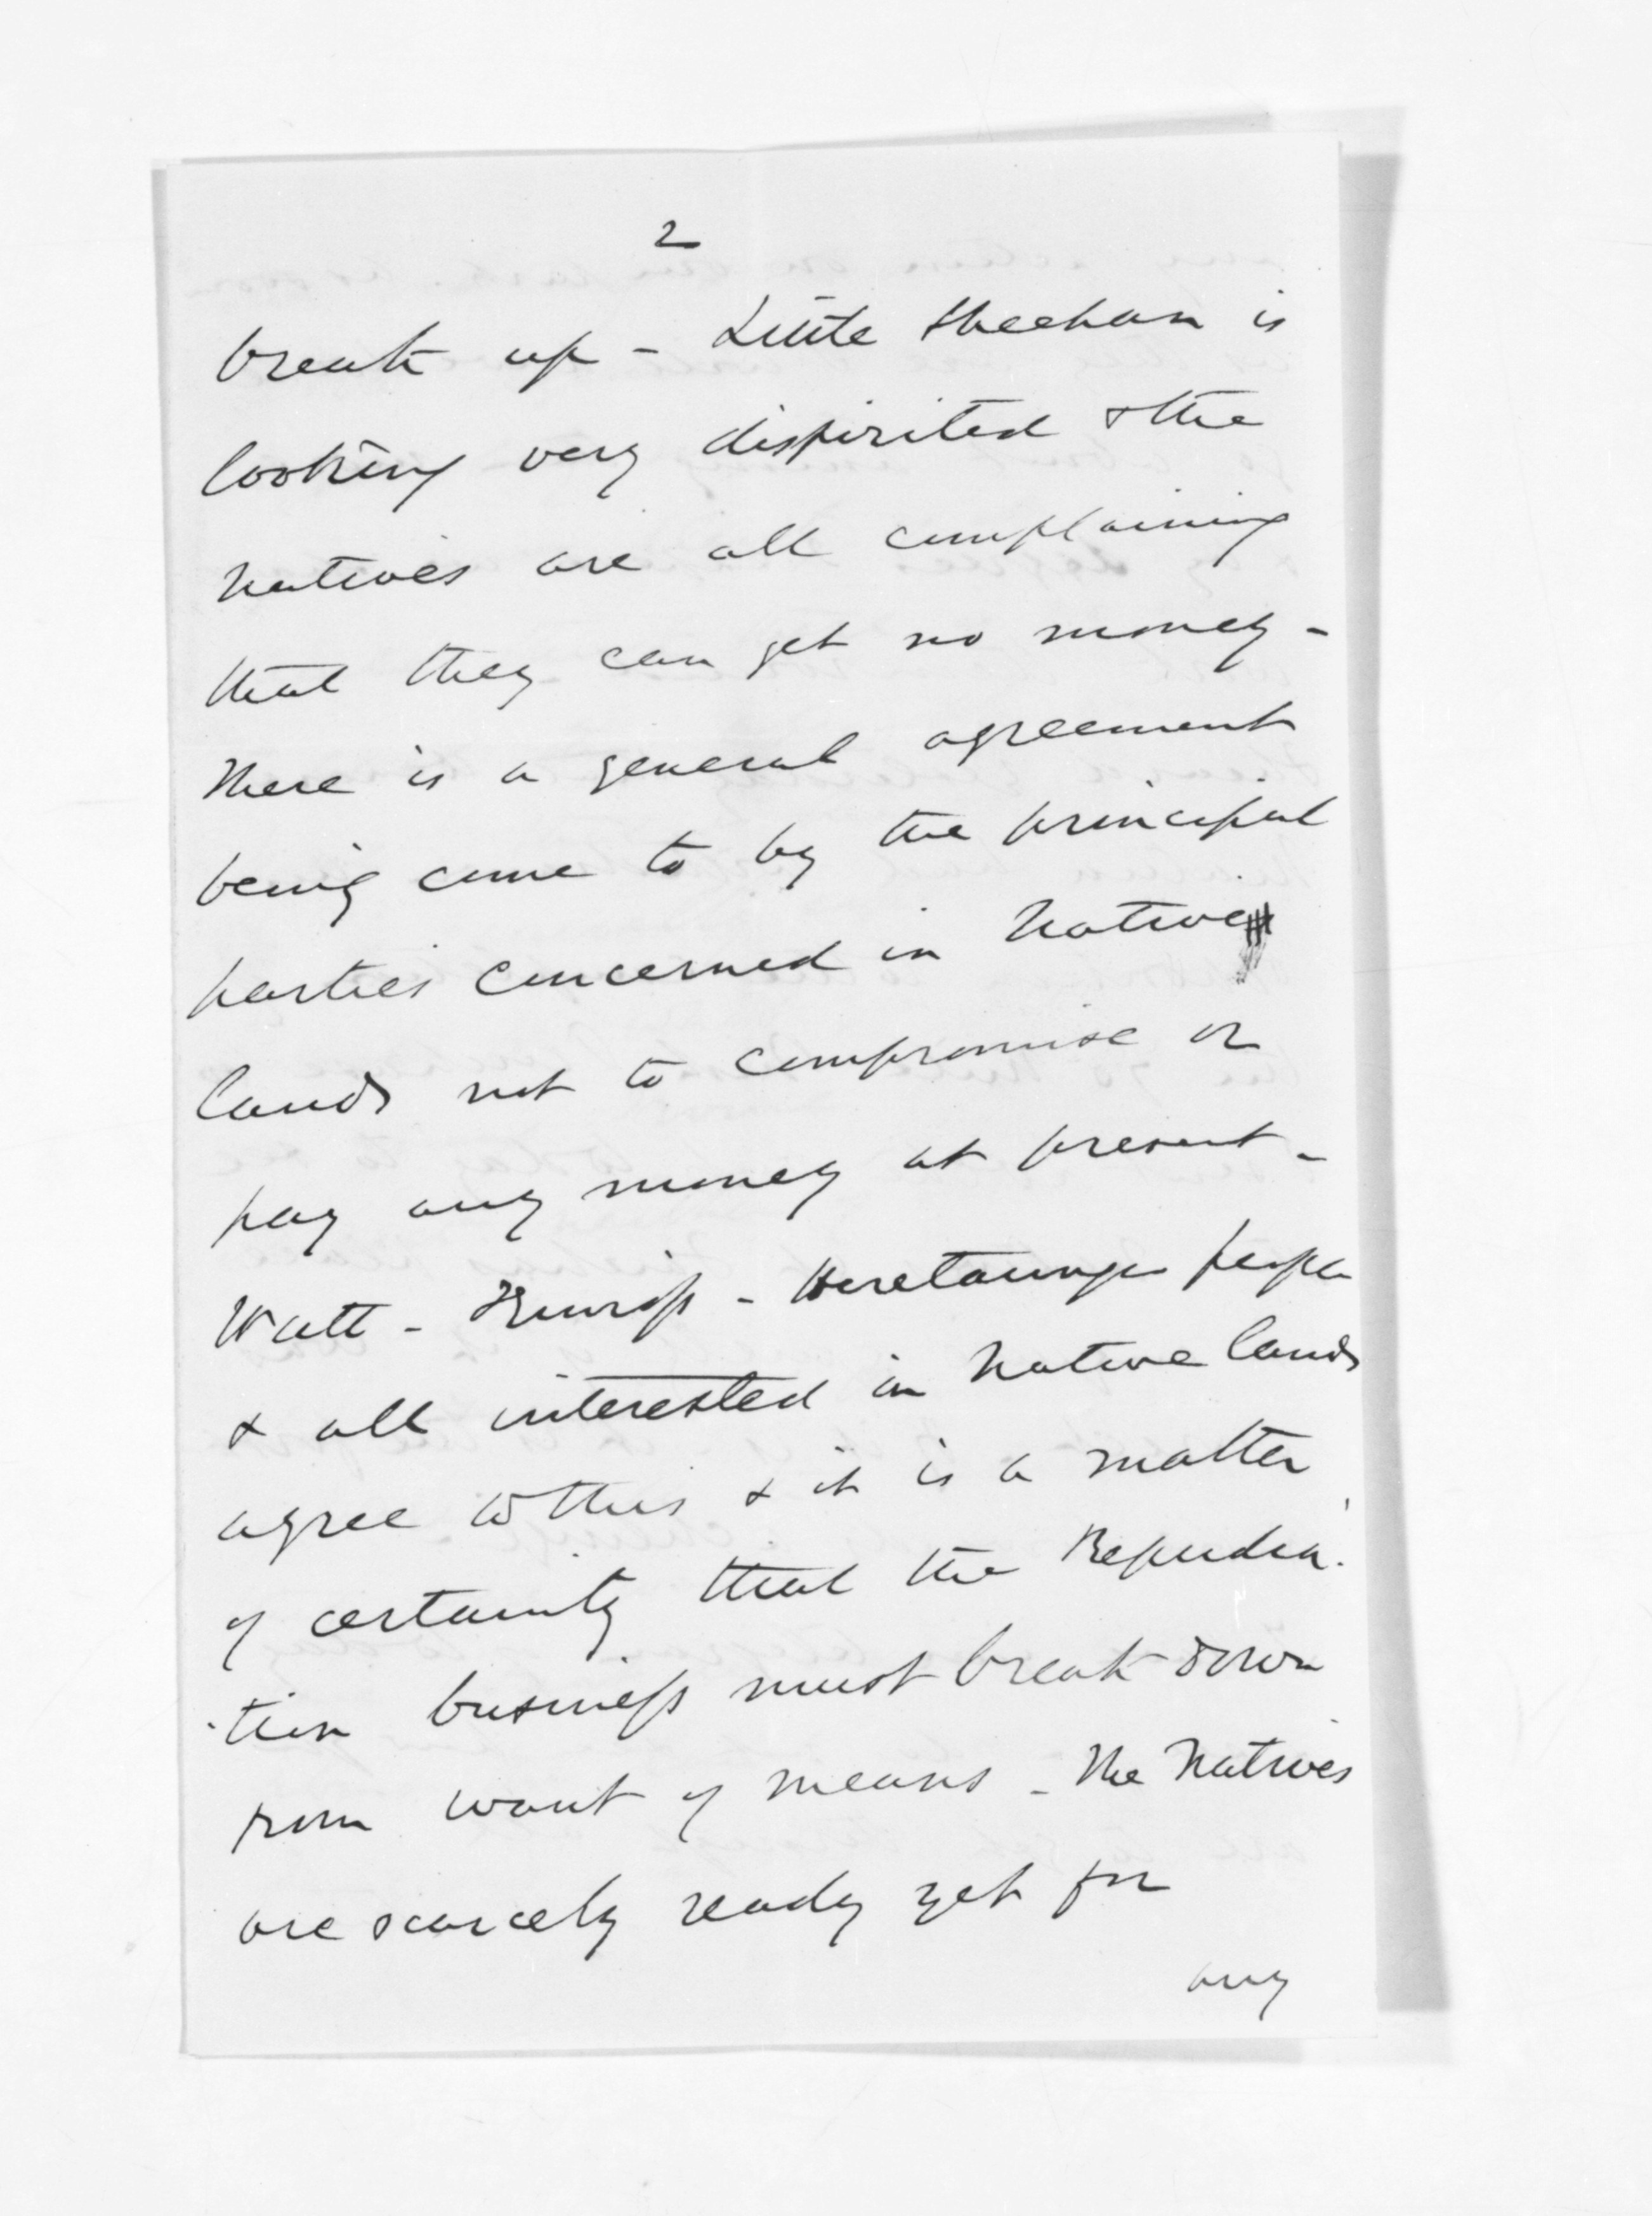 2
break up - Little Sheehan is
looking very dispirited & the
natives are all complaining
that they can get no money -
There is a general agreement
being come to by the principal
parties concerned in Native
lands not to compromise or
pay any money at present -
Watt - - Heretaunga people
& all interested in Native lands
agree to this & it is a matter
of certainty that the Repudia-
-tion business must break down
from want of means - The Natives
are scarcely ready yet for
any